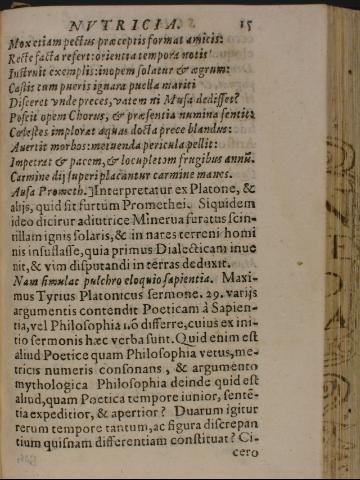 NVTRICIA. 15
Mox etiam pectus præceptis format amicis:
Recte facta refert: orientia tempora notis
Instruit exemplis: inopem solatur & ægrum:
Castis cum pueris ignara puella mariti
Disceret vnde preces, vatem ni Musa dedisset?
Poscit opem Chorus, & præsentia numina sentit:
Cœlestes implorat aquas docta prece blandus:
Auertit morbos: metuenda pericula pellit:
Impetrat & pacem, & locupletem frugibus annũ.
Carmine dij superi placantur carmine manes.
Ausa Prometh.] Interpretatur ex Platone, &
alijs, quid sit furtum Promethei. Siquidem
ideo dicirur adiutrice Minerua furatus scin-
tillam ignis solaris, & in nares terreni homi
nis insuflasse, quia primus Dialecticam inue
nit, & vim disputandi in terras deduxit.
Nam simulac pulchro eloquio sapientia. Maxi-
mus Tyrius Platonicus sermone. 29. varijs
argumentis contendit Poeticam à Sapien-
tia, vel Philosophia nõ differre, cuius ex ini-
tio sermonis hæc verba sunt. Quid enim est
aliud Poetice quam Philosophia vetus, me-
tricis numeris consonans, & argumento
mythologica Philosophia deinde quid est
aliud, quam Poetica tempore iunior, sentẽ-
tia expeditior, & apertior? Duarum igitur
rerum tempore tantum, ac figura discrepan
tium quisnam differentiam constituat? Ci-
cero